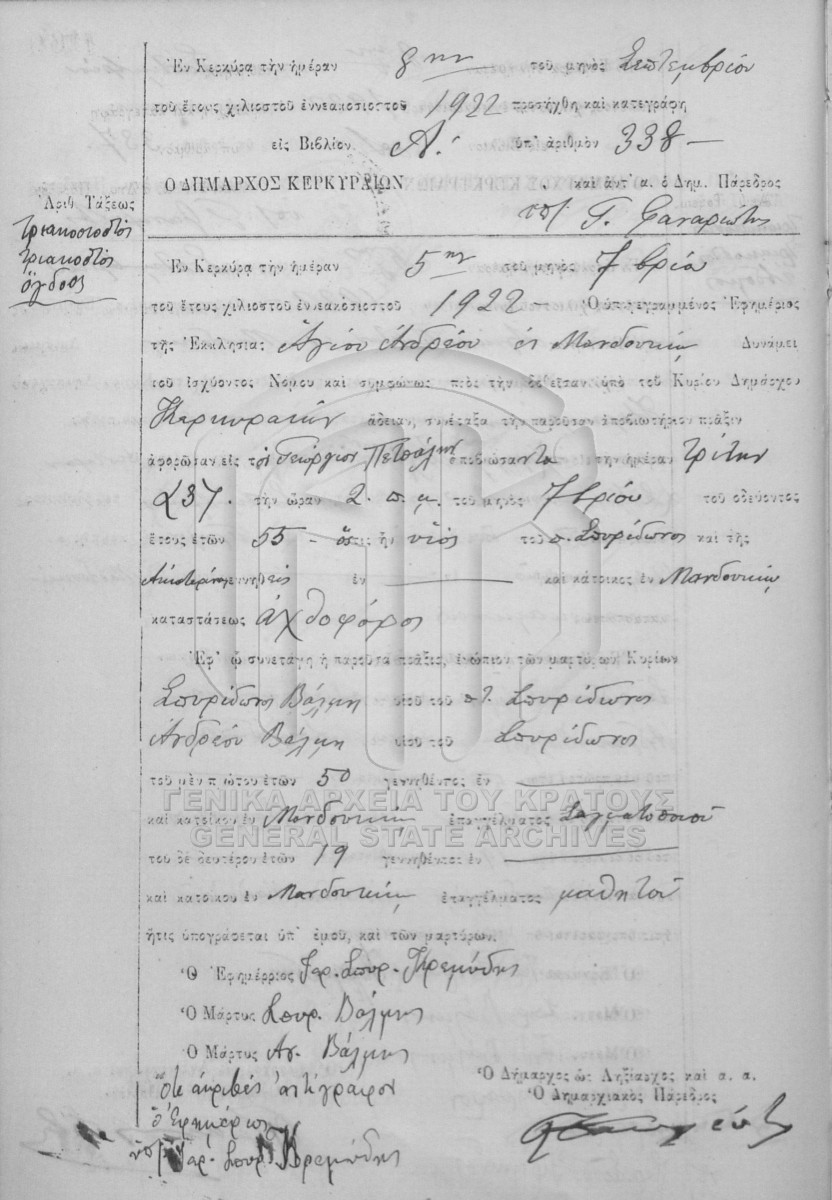 Ἐν Κερκύρᾳ τὴν ἡμέραν 8ην τοῦ μηνὸς Σεπτεμβρίου
τοῦ ἔτους χιλιοστοῦ ἐννεακοσιοστοῦ 1922 προσήχθη καὶ κατεγράφη
εἰς Βιβλίον Α΄. ὑπ' ἀριθμὸν 338 —
Ο ΔΗΜΑΡΧΟΣ ΚΕΡΚΥΡΑΙΩΝ καὶ ἀντ' α. ὁ Δημ. Πάρεδρος
Γ. Φαναριώτης
Ἀριθ Τάξεως
τριακοσιοστὸς
τριακοστὸς
ὄγδοος
Ἐν Κερκύρᾳ τὴν ἡμέραν 5ην τοῦ μηνὸς 7βρίου
τοῦ ἔτους χιλιοστοῦ ἐννεακοσιοστοῦ 1922 — Ὁ ὑπογεγραμμένος Ἐφημέριος
τῆς Ἐκκλησίας Ἁγίου Ἀνδρέου ἐν Μανδουκίῳ Δυνάμει
τοῦ ἰσχύοντος Νόμου καὶ συμφώνως πρὸς τὴν δοθεῖσαν ὑπὸ τοῦ Κυρίου Δημάρχου
Κερκυραίων ἄδειαν, συνέταξα τὴν παροῦσαν ἀποβιωτήριον πρᾶξιν
ἀφορῶσαν εἰς τὸν Γεώργιον Πετσάλην ἀποβιώσαντα τὴν ἡμέραν τρίτην
τὴν ὥραν 2. π. μ. τοῦ μηνὸς 7βρίου τοῦ ὁδεύοντος
ἔτους ἐτῶν 55 — ὅστις ἦν υἱὸς τοῦ π. Σπυρίδωνος καὶ τῆς
Αἰκατερίνης γεννηθεὶς ἐν ——— καὶ κάτοικος ἐν Μανδουκίῳ
καταστάσεως ἀχθοφόρος
Ἐφ' ᾧ συνετάγη ἡ παροῦσα πρᾶξις, ἐνώπιον τῶν μαρτύρων Κυρίων
Σπυρίδωνος Βάλμη υἱοῦ τοῦ Σπυρίδωνος
Ἀνδρέου Βάλμη υἱοῦ τοῦ Σπυρίδωνος
τοῦ μὲν πρώτου ἐτῶν 50 γεννηθέντος ἐν ———
ΓΕΝΙΚΑ ΑΡΧΕΙΑ ΤΟΥ ΚΡΑΤΟΥΣ
καὶ κατοίκου ἐν Μανδουκίῳ ἐπαγγέλματος Σαγματοποιοῦ
GENERAL STATE ARCHIVES
τοῦ δὲ δευτέρου ἐτῶν 19 γεννηθέντος ἐν ———
καὶ κατοίκου ἐν Μανδουκίῳ ἐπαγγέλματος μαθητοῦ
ἥτις ὑπογράφεται ὑπ' ἐμοῦ, καὶ τῶν μαρτύρων.
Ὁ Ἐφημέριος Ἱερ. Σπυρ. Κρεμύδης
Ὁ Μάρτυς Σπυρ. Βάλμης
Ὁ Μάρτυς Ἀν. Βάλμης
Ὅτι ἀκριβὲς ἀντίγραφον
ὁ Ἐφημέριος
Ἱερ. Σπυρ. Κρεμύδης
Ὁ Δήμαρχος ὡς Ληξίαρχος καὶ α. α.
Ὁ Δημαρχιακὸς Πάρεδρος